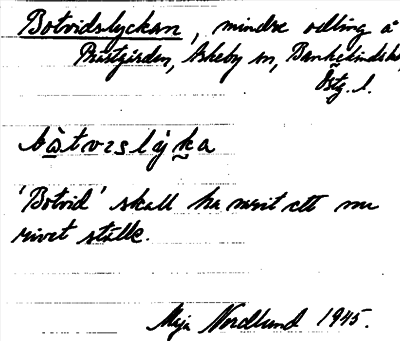 Botvidslyckan, mindre odling å
Prästgården, Askeby sn, Bankekinds hd,
Östg. l.
bòtvɪslỳka
'Botvid' skall ha varit ett nu
rivet ställe.
Maja Nordlund 1945.